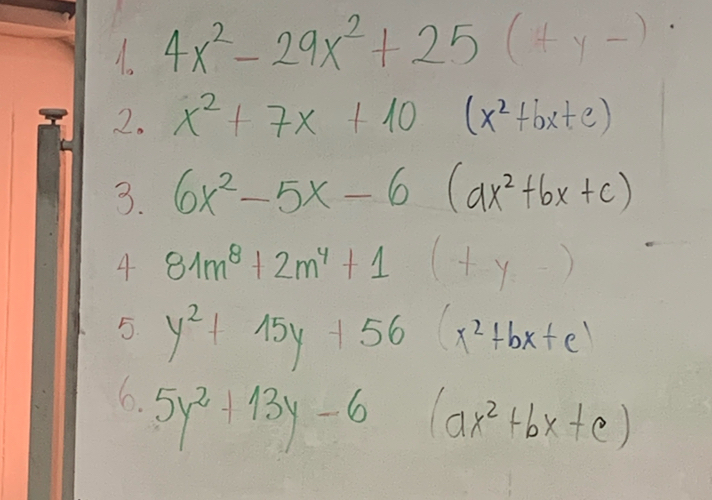 1. 4x² - 29x² + 25 (+ y -)
2. x² + 7x + 10 (x² + bx + c)
3. 6x² - 5x - 6 (ax² + bx + c)
4 81m⁸ + 2m⁴ + 1 (+ y -)
5. y² + 15y + 56 (x² + bx + c)
6. 5y² + 13y - 6 (ax² + bx + c)